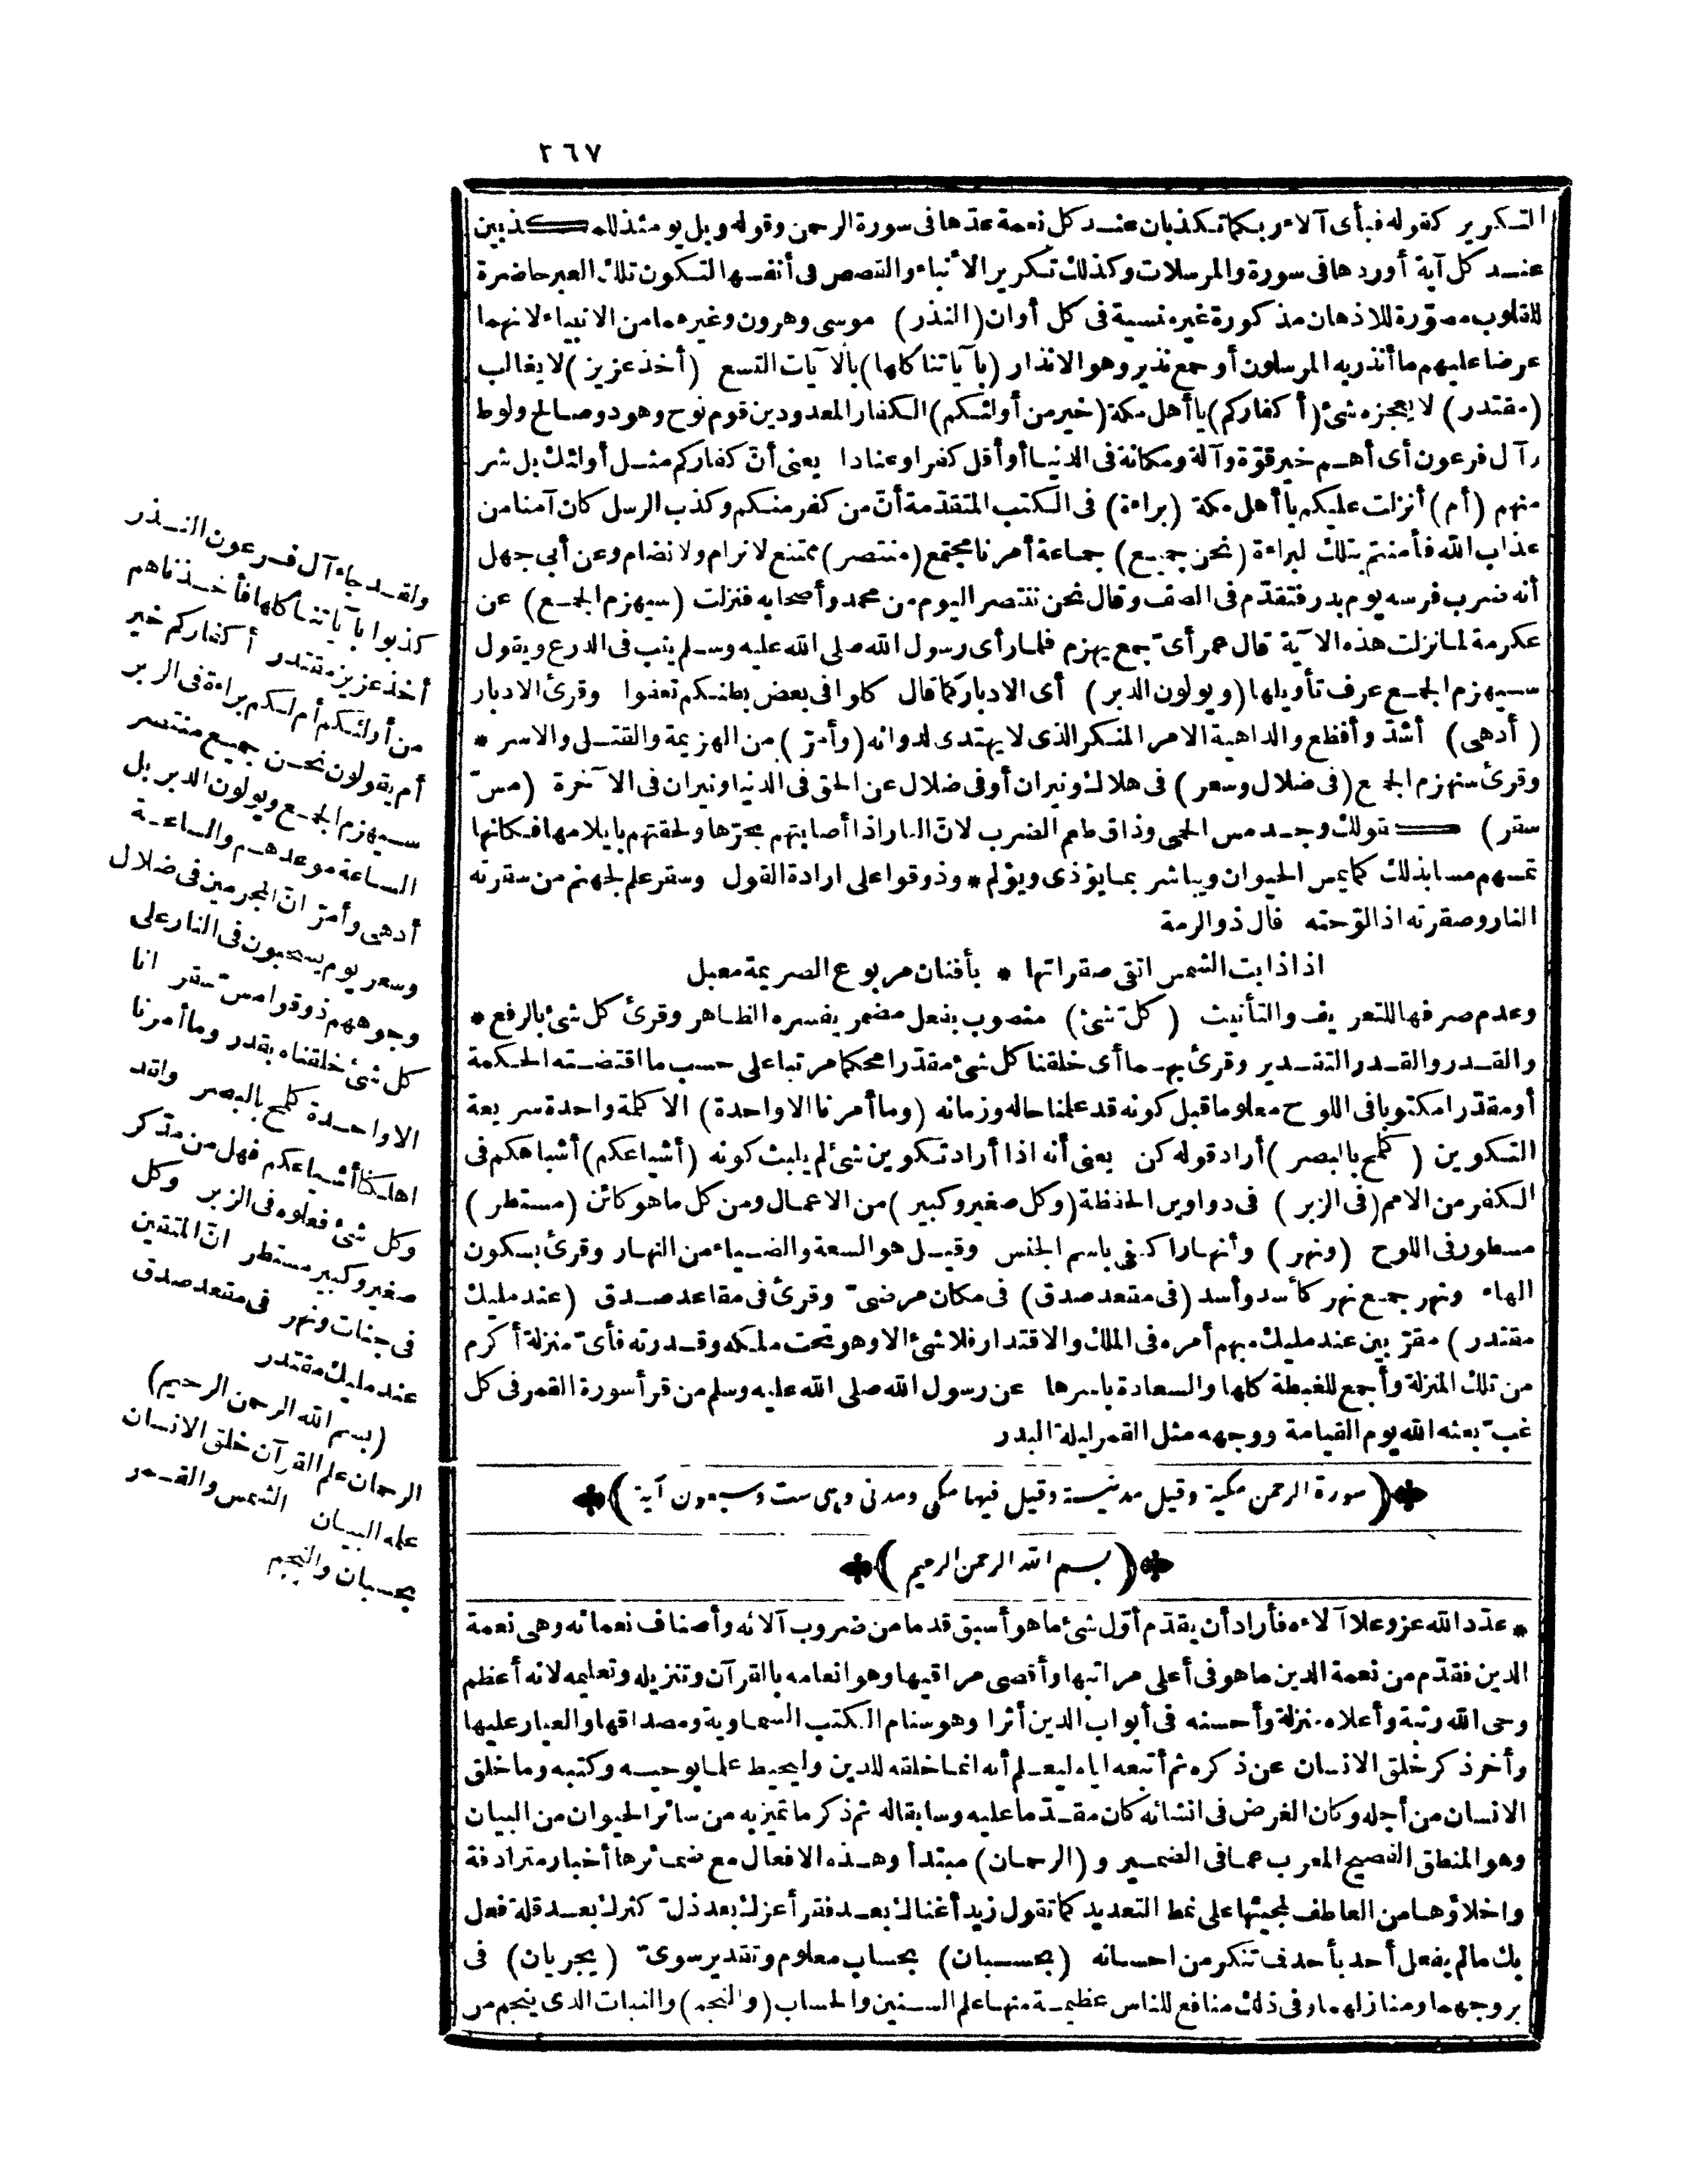 ٢٦٧
التكرير كقوله فبأى آلاء ربكما تكذبان عند كل نعمة عدّها فى سورة الرحمن وقوله ويل يومئذ للمكذبين
عند كل آية أوردها فى سورة والمرسلات وكذلك تكرير الأنباء والقصص فى أنفسها لتكون تلك العبر حاضرة
للقلوب مصوّرة للاذهان مذكورة غير منسية فى كل أوان (النذر) موسى وهرون وغيرهما من الانبياء لانهما
عرضا عليهم ما أنذر به المرسلون أو جمع نذير وهو الانذار (بآياتنا كلها) بالآيات التسع (أخذ عزيز) لا يغالب
(مقتدر) لا يعجزه شئ (أ كفاركم) يا أهل مكة (خير من أولئكم) الكفار المعدودين قوم نوح وهود وصالح ولوط
وآل فرعون أى أهم خير قوّة وآلة ومكانة فى الدنيا أو أقل كفرا وعنادا يعنى أنّ كفاركم مثل أولئك بل شر
منهم (أم) أنزلت عليكم يا أهل مكة (براءة) فى الكتب المتقدّمة أنّ من كفر منكم وكذب الرسل كان آمنا من
عذاب الله فأمنتم بتلك لبراءة (نحن جميع) جماعة أمرنا مجتمع (منتصر) ممتنع لا نرام ولا نضام وعن أبى جهل
أنه ضرب فرسه يوم بدر فتقدّم فى الصف وقال نحن ننتصر اليوم من محمد وأصحابه فنزلت (سيهزم الجمع) عن
عكرمة لما نزلت هذه الآية قال عمر أىّ جمع يهزم فلما رأى رسول الله صلى الله عليه وسلم يثب فى الدرع ويقول
سيهزم الجمع عرف تأويلها (ويولون الدبر) أى الادبار كما قال كلوا فى بعض بطنكم تعفوا وقرئ الادبار
(أدهى) أشدّ وأفظع والداهية الامر المنكر الذى لا يهتدى لدوائه (وأمرّ) من الهزيمة والقتل والاسر *
وقرئ سنهزم الجمع (فى ضلال وسعر) فى هلاك ونيران أو فى ضلال عن الحق فى الدنيا ونيران فى الآخرة (مسّ
سقر) كقولك وجد مس الحمى وذاق طعم الضرب لانّ النار اذا أصابتهم بحرّها ولحقتهم بايلامها فكانها
تمسهم مسا بذلك كما يمس الحيوان ويباشر بما يؤذى ويؤلم * وذوقوا على ارادة القول وسقر علم لجهنم من سقرته
النار وصقرته اذا لوّحته قال ذو الرمة
اذا ذابت الشمس اتقى صقراتها * بأفنان مربوع الصريمة معبل
وعدم صرفها للتعريف والتأنيث (كلّ شئ) منصوب بفعل مضمر يفسره الظاهر وقرئ كل شئ بالرفع *
والقدر والقدر والتقدير وقرئ بهما أى خلقنا كل شئ مقدّرا محكما مرتبا على حسب ما اقتضته الحكمة
أو مقدّرا مكتوبا فى اللوح معلوما قبل كونه قد علمنا حاله وزمانه (وما أمرنا الا واحدة) الا كلمة واحدة سريعة
التكوين (كلمح بالبصر) أراد قوله كن يعنى أنه اذا أراد تكوين شئ لم يلبث كونه (أشياعكم) أشباهكم فى
الكفر من الامم (فى الزبر) فى دواوين الحفظة (وكل صغير وكبير) من الاعمال ومن كل ما هو كائن (مستطر)
مسطور فى اللوح (ونهر) وأنهار اكتفى باسم الجنس وقيل هو السعة والضياء من النهار وقرئ بسكون
الهاء ونهر جمع نهر كأسد وأسد (فى مقعد صدق) فى مكان مرضىّ وقرئ فى مقاعد صدق (عند مليك
مقتدر) مقرّبين عند مليك مبهم أمره فى الملك والاقتدار فلا شئ الا وهو تحت ملكه وقدرته فأىّ منزلة أكرم
من تلك المنزلة وأجمع للغبطة كلها والسعادة باسرها عن رسول الله صلى الله عليه وسلم من قرأ سورة القمر فى كل
غبّ بعثه الله يوم القيامة ووجهه مثل القمر ليلة البدر
(سورة الرحمن مكية وقيل مدنية وقيل فيها مكى ومدنى وهى ست وسبعون آية)
(بسم الله الرحمن الرحيم)
* عدّد الله عز وعلا آلاءه فأراد أن يقدّم أوّل شئ ما هو أسبق قدما من ضروب آلائه وأصناف نعمائه وهى نعمة
الدين فقدّم من نعمة الدين ما هو فى أعلى مراتبها وأقصى مراقيها وهو انعامه بالقرآن وتنزيله وتعليمه لانه أعظم
وحى الله رتبة وأعلاه منزلة وأحسنه فى أبواب الدين أثرا وهو سنام الكتب السماوية ومصداقها والعيار عليها
وأخر ذكر خلق الانسان عن ذكره ثم أتبعه اياه ليعلم أنه انما خلقه للدين وليحيط علما بوحيه وكتبه وما خلق
الانسان من أجله وكان الغرض فى انشائه كان مقدّما عليه وسابقا له ثم ذكر ما تميز به من سائر الحيوان من البيان
وهو المنطق الفصيح المعرب عما فى الضمير و (الرحمان) مبتدأ وهذه الافعال مع ضمائرها أخبار مترادفة
واخلاؤها من العاطف لمجيئها على نمط التعديد كما تقول زيد أغناك بعد فقر أعزك بعد ذلّ كثرك بعد قلة فعل
بك ما لم يفعل أحد بأحد فما تنكر من احسانه (بحسبان) بحساب معلوم وتقدير سوىّ (يجريان) فى
بروجهما ومنازلهما وفى ذلك منافع للناس عظيمة منها علم السنين والحساب (والنجم) والنبات الذى ينجم من
ولقد جاء آل فرعون النذر
كذبوا بآياتنا كلها فأخذناهم
أخذ عزيز مقتدر أ كفاركم خير
من أولئكم أم لكم براءة فى الزبر
أم يقولون نحن جميع منتصر
سيهزم الجمع ويولون الدبر بل
الساعة موعدهم والساعة
أدهى وأمرّ انّ المجرمين فى ضلال
وسعر يوم يسحبون فى النار على
وجوههم ذوقوا مسّ سقر انا
كل شئ خلقناه بقدر وما أمرنا
الا واحدة كلمح بالبصر ولقد
اهلكنا أشياعكم فهل من مدّكر
وكل شئ فعلوه فى الزبر وكل
صغير وكبير مستطر انّ المتقين
فى جنات ونهر فى مقعد صدق
عند مليك مقتدر
(بسم الله الرحمن الرحيم)
الرحمان علم القرآن خلق الانسان
علمه البيان الشمس والقمر
بحسبان والنجم